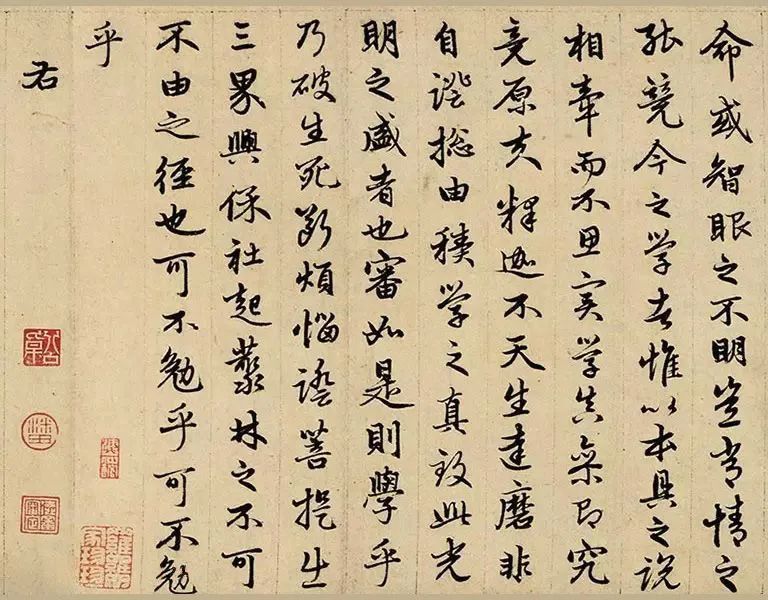 命或智眼之不明豈常情之
競今之学者惟以本具之说
相牽而不思实学真參即究
竟原夫釋迦不天生達磨非
自證揔由積学之真致此光
明之盛者也審如是則學乎
乃破生死斷煩惱證菩提出
三界興保社起叢林之不可
不由之徑也可不勉乎可不勉
乎
右